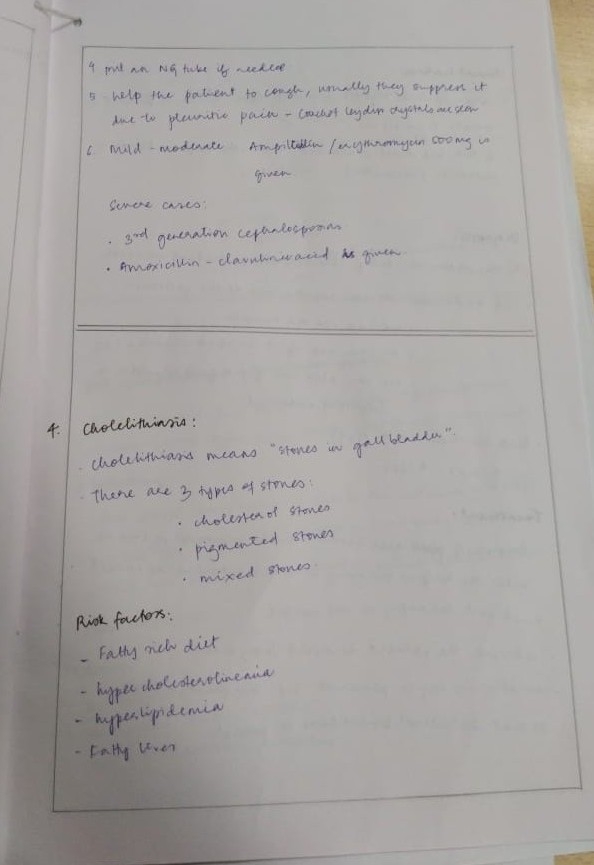 4 put an NG tube if needed
5 help the patient to cough, usually they suppress it
due to pleuritic pain - leyden crystals are seen
6. Mild - moderate Ampicillin / erythromycin 500mg is
given
Severe cases:
• 3rd generation cephalosporins
• Amoxicillin - clavulanic acid is given.
4. Cholelithiasis:
- Cholelithiasis means "stones in gall bladder".
- There are 3 types of stones:
• cholesterol stones
• pigmented stones
• mixed stones.
Risk factors:
- Fatty rich diet
- hyper cholesterolinemia
- hyperlipidemia
- Fatty liver